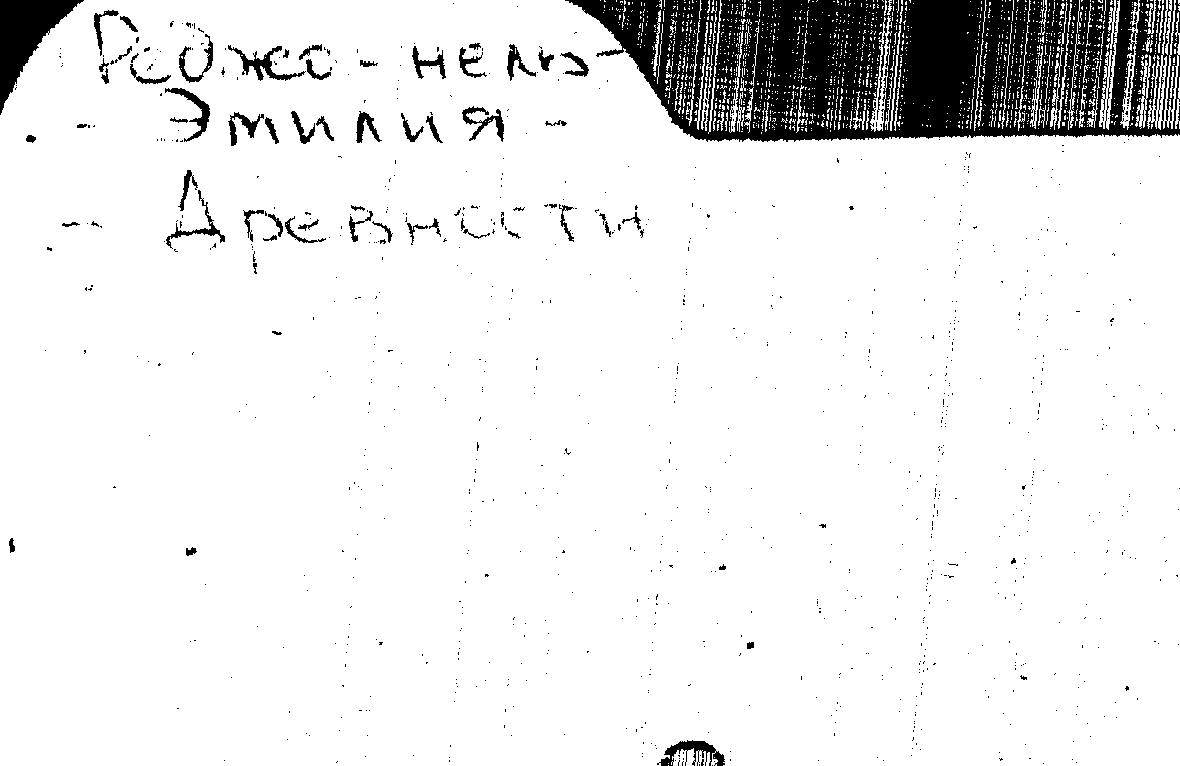 Реджо-нель-
- Эмилия -
- Древности